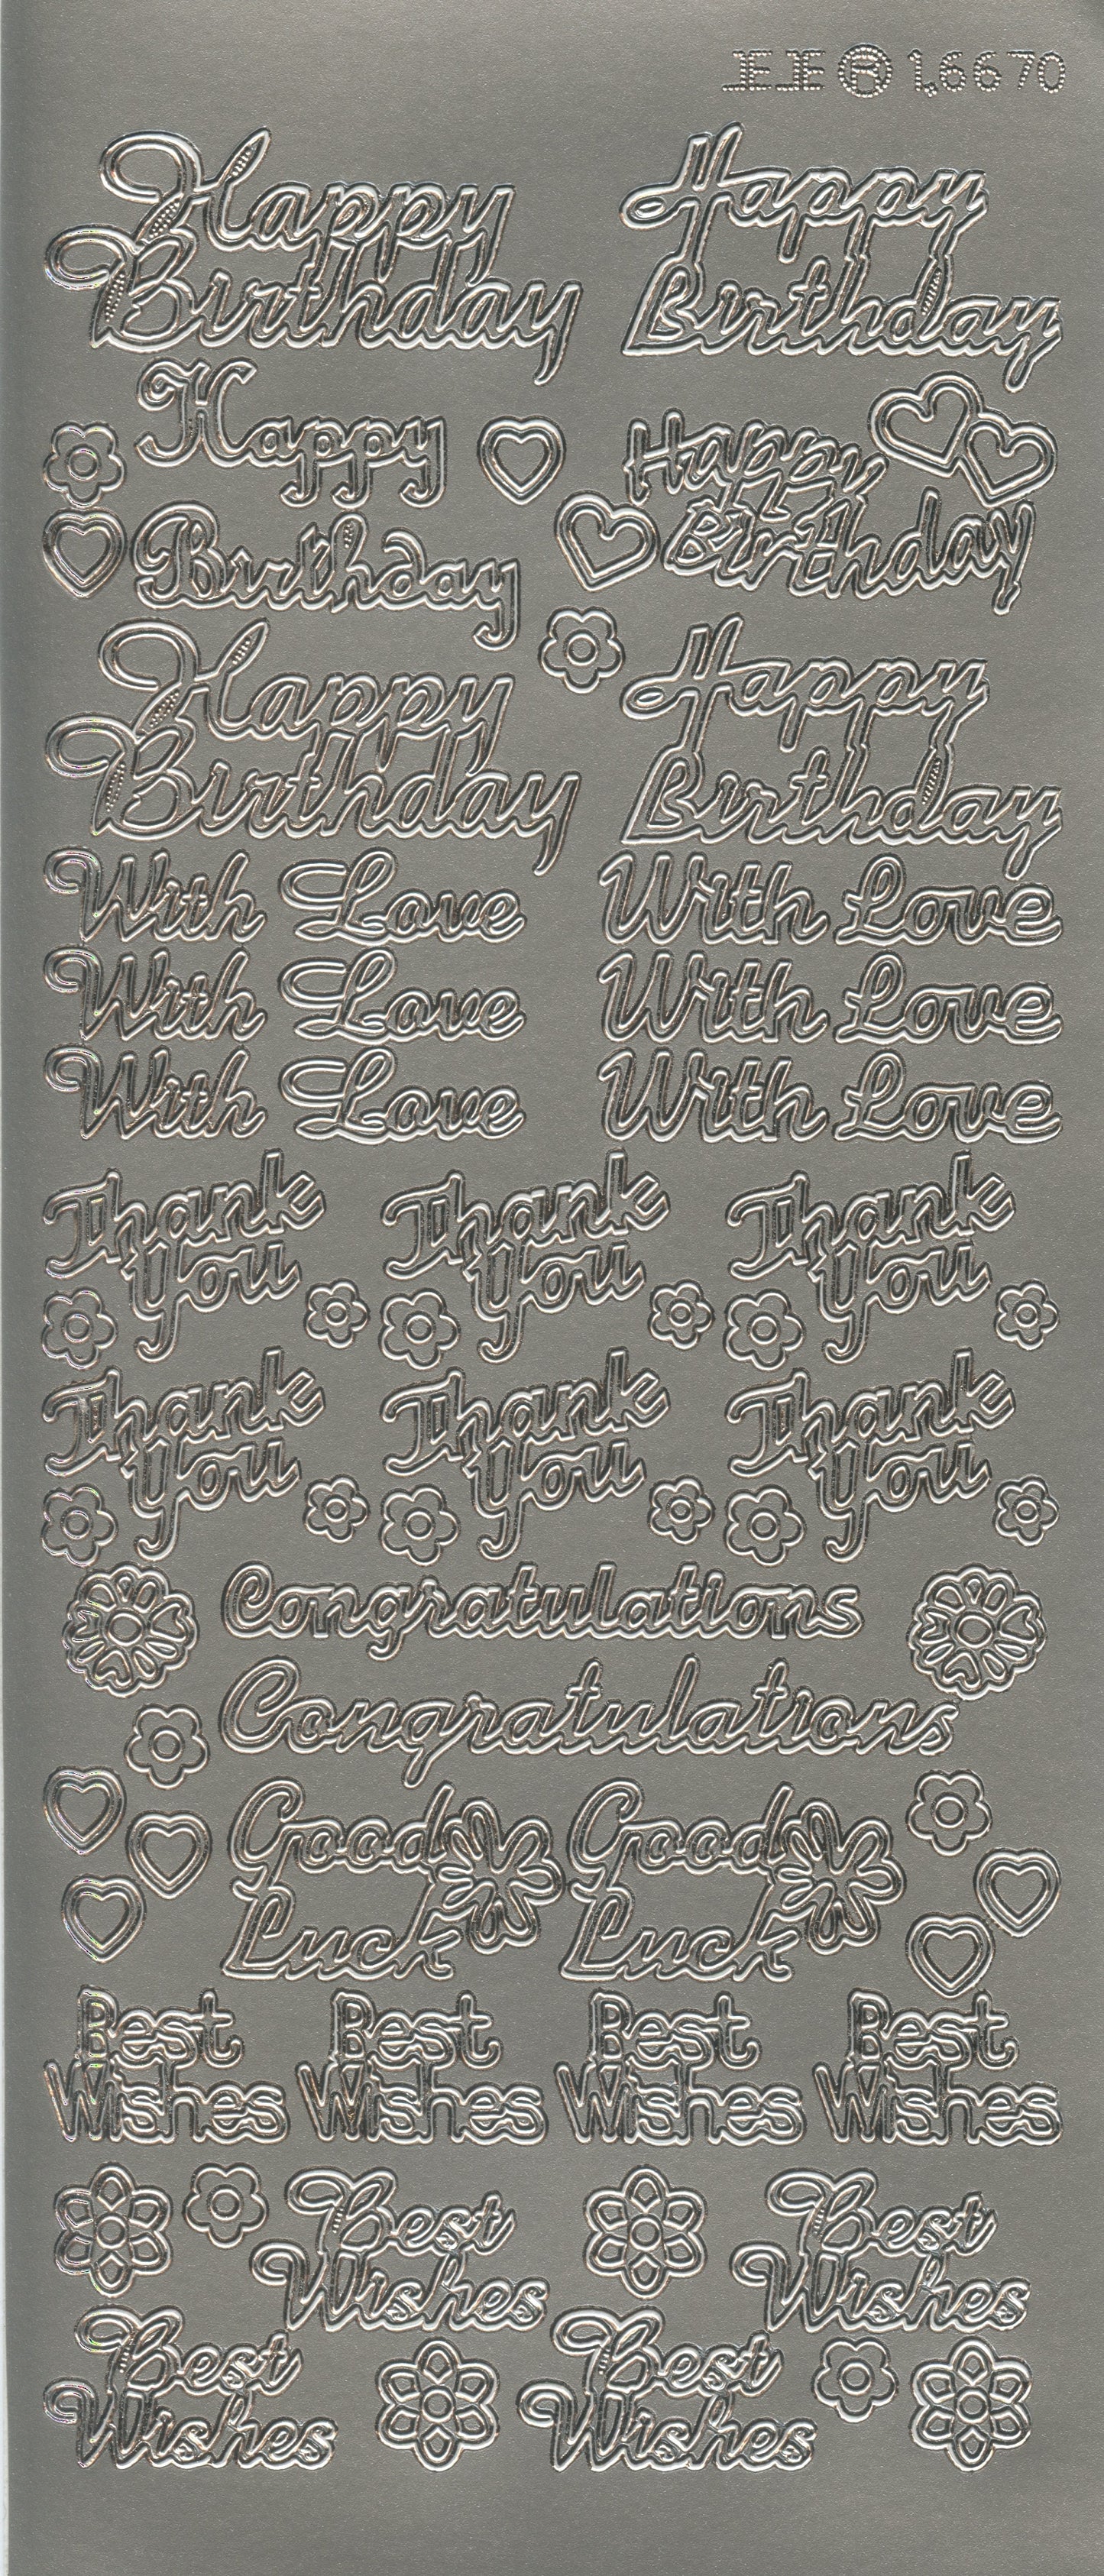 JEJE ® 1.6670
Happy
Birthday
Happy
Birthday
Happy
Birthday
Happy
Birthday
Happy
Birthday
Happy
Birthday
With Love
With Love
With Love
With Love
With Love
With Love
Thank
You
Thank
You
Thank
You
Thank
You
Thank
You
Thank
You
Congratulations
Congratulations
Good
Luck
Good
Luck
Best
Wishes
Best
Wishes
Best
Wishes
Best
Wishes
Best
Wishes
Best
Wishes
Best
Wishes
Best
Wishes